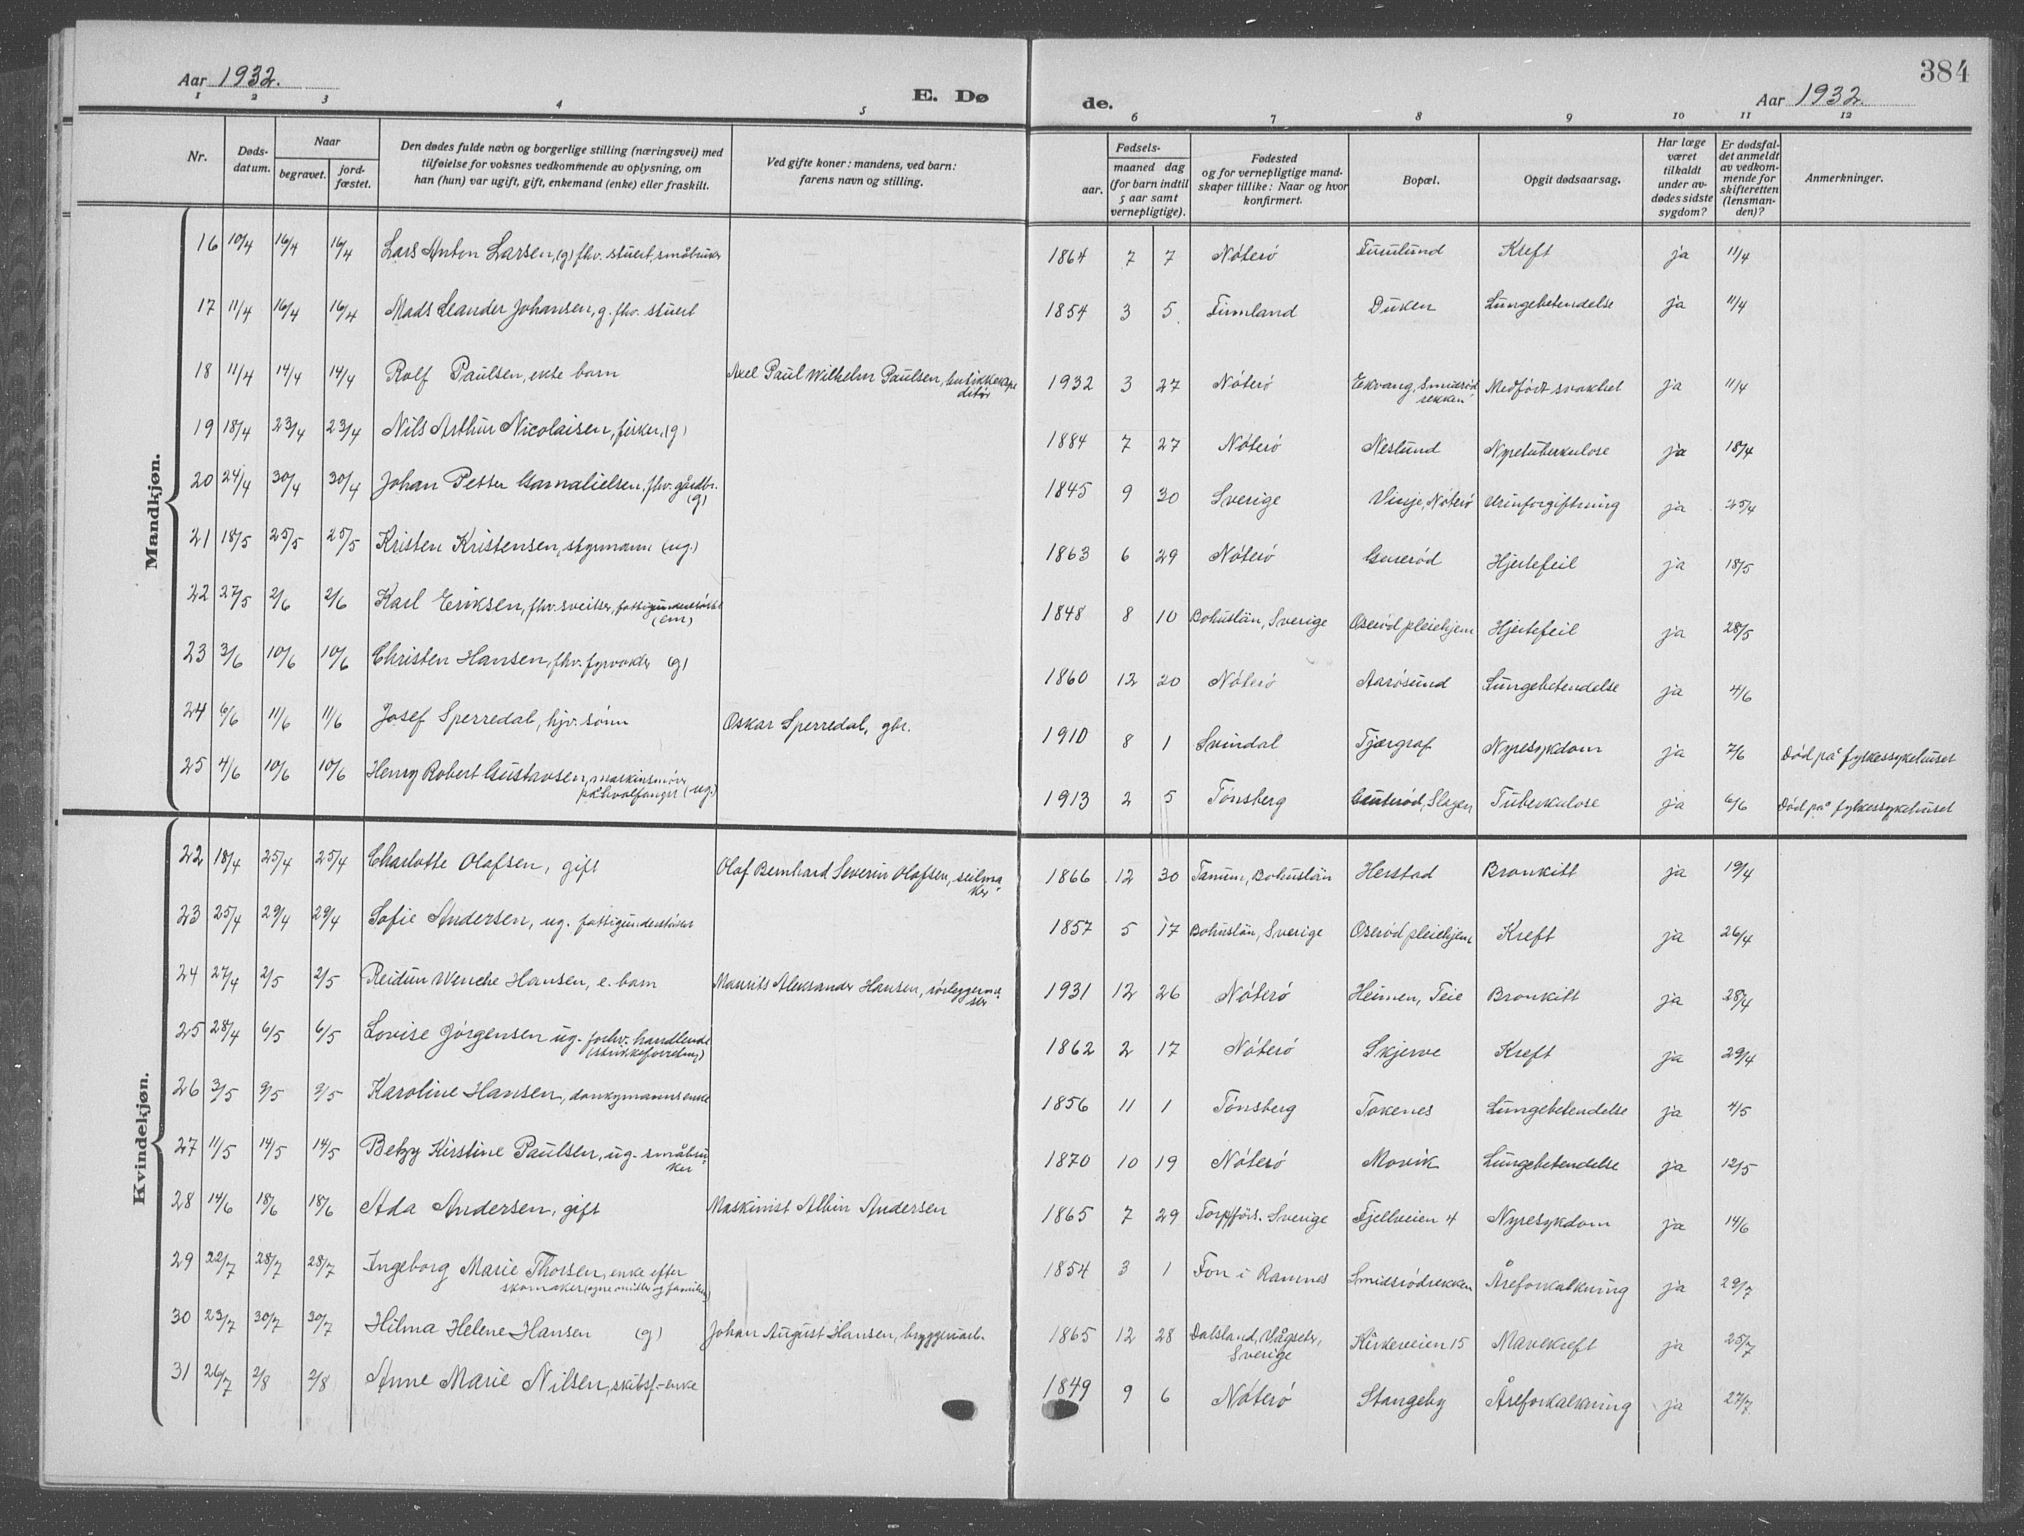 384
Aar 1932.
E. Dø
de.
Aar 1932.
1 2 3 4 5 6 7 8 9 10 11 12
Nr.
Døds-
datum.
Naar
begravet.
jord-
fæstet.
Den dødes fulde navn og borgerlige stilling (næringsvei) med
tilføielse for voksnes vedkommende av oplysning, om
han (hun) var ugift, gift, enkemand (enke) eller fraskilt.
Ved gifte koner: mandens, ved barn:
farens navn og stilling.
Fødsels-
aar.
maaned dag
(for barn indtil
5 aar samt
vernepligtige).
Fødested
og for vernepligtige mand-
skaper tillike: Naar og hvor
konfirmert.
Bopæl.
Opgit dødsaarsag.
Har læge
været
tilkaldt
under av-
dødes sidste
sygdom?
Er dødsfal-
det anmeldt
av vedkom-
mende for
skifteretten
(lensman-
den)?
Anmerkninger.
Mandkjøn.
16 10/4 16/4 16/4 Lars Anton Larsen, (g) fhv. stuert, småbruker 1864 7 7 Nøterø Kreft ja 11/4
17 11/4 16/4 16/4 Mads Leander Johansen, g. fhv. stuert 1854 3 5 Finnland Duken Lungebetendelse ja 11/4
18 11/4 14/4 14/4 Rolf Paulsen, ekte barn Axel Paul Wilhelm Paulsen, butikkekspe
ditør 1932 3 27 Nøterø Ekvang, Smidsrød
rekken Medfødt svakhet ja 11/4
19 18/4 23/4 23/4 Nils Arthur Nicolaisen, fisker, (g) 1884 7 27 Nøterø Neslund Nyretuberkulose ja 18/4
20 24/4 30/4 30/4 Johan Petter Gamalielsen, fhv. gårdbr.
(g) 1845 9 30 Sverige Vinje, Nøterø Urinforgiftning ja 25/4
21 18/5 25/5 25/5 Kristen Kristensen, styrmann (ug.) 1863 6 29 Nøterø Hjertefeil ja 18/5
22 27/5 2/6 2/6 Karl Eriksen, fhv. sveitser, fattigunderstøttet
(em) 1848 8 10 Bohuslän, Sverige Oserød pleiehjem Hjertefeil ja 28/5
23 3/6 10/6 10/6 Christen Hansen, fhv. fyrvokter (g) 1860 12 20 Nøterø Aarøsund Lungebetendelse ja 4/6
24 6/6 11/6 11/6 Josef Sperredal, hjv. sønn Oskar Sperredal, gbr. 1910 8 1 Svindal Tjærgraf Nyresykdom ja 7/6 Død på fylkessykehuset
25 4/6 10/6 10/6 Henry Robert Gustavsen, maskinsmører
på hvalfanger (ug.) 1913 2 5 Tønsberg Gauterød, Slagen Tuberkulose ja 6/6 Død på fylkessykehuset
Kvindekjøn.
22 18/4 25/4 25/4 Charlotte Olafsen, gift Olaf Bernhard Severin Olafsen, seilma
ker 1866 12 30 Tanum, Bohuslän Herstad Bronkitt ja 19/4
23 25/4 29/4 29/4 Sofie Andersen, ug. fattigunderstøttet 1857 5 17 Bohuslän, Sverige Oserød pleiehjem Kreft ja 26/4
24 27/4 2/5 2/5 Reidun Wenche Hansen, e. barn Maurits Aleksander Hansen, rørleggerme
ster 1931 12 26 Nøterø Heimen, Teie Bronkitt ja 28/4
25 28/4 6/5 6/5 Lovise Jørgensen ug. forhv. handlende
(strikkeforretning) 1862 2 17 Nøterø Skjerve Kreft ja 29/4
26 3/5 9/5 9/5 Karoline Hansen, donkymannsenke 1856 11 1 Tønsberg Tokenes Lungebetendelse ja 4/5
27 11/5 14/5 14/5 Betzy Kirstine Paulsen, ug. småbru
ker 1870 10 19 Nøterø Movik Lungebetendelse ja 12/5
28 14/6 18/6 18/6 Ada Andersen, gift Maskinist Albin Andersen 1865 7 29 Torpförs. Sverige Fjellveien 4 Nyresykdom ja 14/6
29 22/7 28/7 28/7 Ingeborg Marie Thorsen, enke efter
skomaker (egne midler og familien) 1854 3 1 Fon i Ramnes Smidsrødrekken Åreforkalkning ja 29/7
30 23/7 30/7 30/7 Hilma Helene Hansen (g) Johan August Hansen, bryggeriarb. 1865 12 28 Dalsland, Vågseter,
Sverige Kirkeveien 15 Mavekreft ja 25/7
31 26/7 2/8 2/8 Anne Marie Nilsen, skibsf.-enke 1849 9 6 Nøterø Stangeby Åreforkalkning ja 27/7